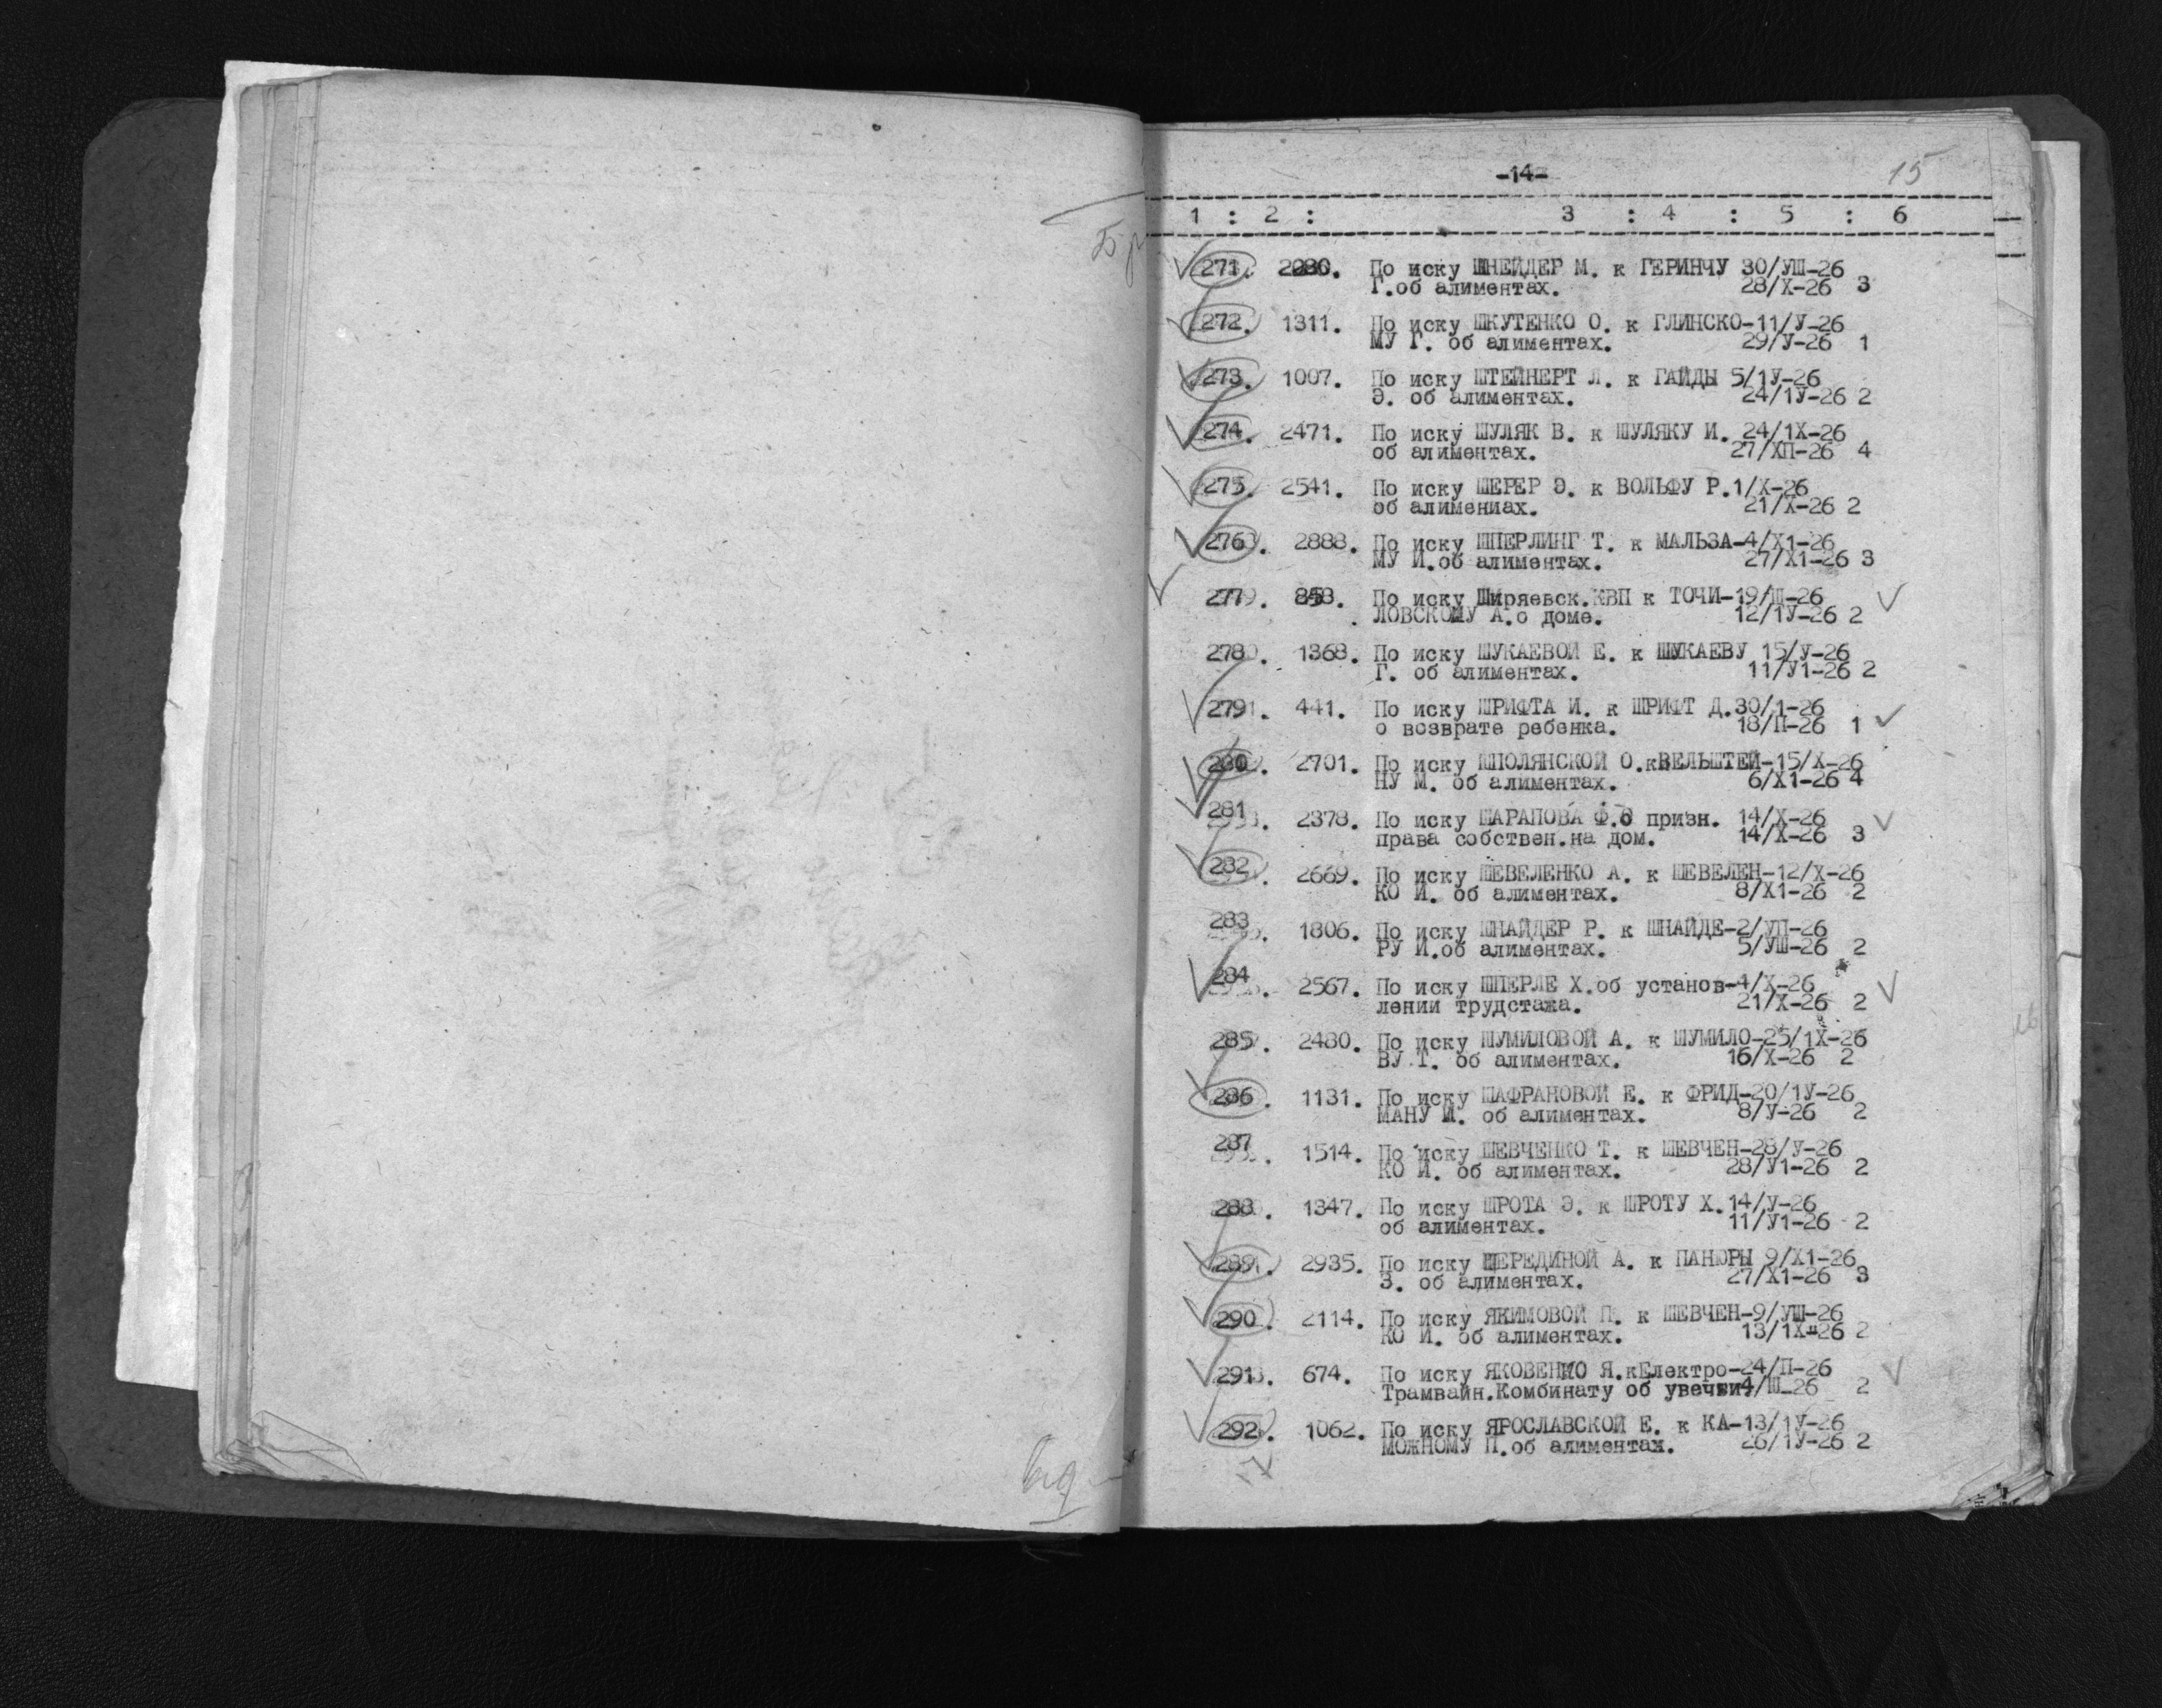 -14-
15
1 : 2 : 3 : 4 : 5 : 6
271. 2080. По иску ШНЕЙДЕР М. к ГЕРИНЧУ 30/УШ-26
Г.об алиментах. 28/Х-26 3
272. 1311. По иску ШКУТЕНКО О. к ГЛИНСКО-11/У-26
МУ Г. об алиментах. 29/У-26 1
273. 1007. По иску ШТЕЙНЕРТ Л. к ГАЙДЫ 5/1У-26
Э. об алиментах. 24/1У-26 2
274. 2471. По иску ШУЛЯК В. к ШУЛЯКУ И. 24/1Х-26
об алиментах. 27/ХП-26 4
275. 2541. По иску ШЕРЕР Э. к ВОЛЬФУ Р.1/Х-26
об алимениах. 21/Х-26 2
276. 2888. По иску ШПЕРЛИНГ Т. к МАЛЬЗА-4/Х1-26
МУ И.об алиментах. 27/Х1-26 3
277. По иску Ширяевск.КВП к ТОЧИ-19/Ш-26
ЛОВСКОМУ А.о доме. 12/1У-26 2
278. 1368. По иску ШУКАЕВОЙ Е. к ШУКАЕВУ 15/У-26
Г. об алиментах. 11/У1-26 2
279. 441. По иску ШРИФТА И. к ШРИФТ Д.30/1-26
о возврате ребенка. 18/П-26 1
280. 2701. По иску ШПОЛЯНСКОЙ О.кВЕЛЬШТЕЙ-15/Х-26
НУ М. об алиментах. 6/Х1-26 4
281. 2378. По иску ШАРАПОВА Ф.О призн. 14/Х-26
права собствен.на дом. 14/Х-26 3
282. 2669. По иску ШЕВЕЛЕНКО А. к ШЕВЕЛЕН-12/Х-26
КО И. об алиментах. 8/Х1-26 2
283. 1806. По иску ШНАЙДЕР Р. к ШНАЙДЕ-2/УП-26
РУ И.об алиментах. 5/УШ-26 2
284. 2567. По иску ШПЕРЛЕ Х.об установ-4/Х-26
лении трудстажа. 21/Х-26 2
285. 2480. По иску ШУМИЛОВОЙ А. к ШУМИЛО-25/1Х-26
ВУ Т. об алиментах. 16/Х-26 2
286. 1131. По иску ШАФРАНОВОЙ Е. к ФРИД-20/1У-26
МАНУ И. об алиментах. 8/У-26 2
287. 1514. По иску ШЕВЧЕНКО Т. к ШЕВЧЕН-28/У-26
КО И. об алиментах. 28/У1-26 2
288. 1347. По иску ШРОТА Э. к ШРОТУ Х.14/У-26
об алиментах. 11/У1-26 2
289. 2935. По иску ЩЕРЕДИНОЙ А. к ПАНЮРЫ 9/Х1-26
З. об алиментах. 27/Х1-26 3
290. 2114. По иску ЯКИМОВОЙ П. к ШЕВЧЕН-9/УШ-26
КО И. об алиментах. 13/1Х-26 2
291. 674. По иску ЯКОВЕНКО Я.кЕлектро-24/П-26
Трамвайн.Комбинату об увечьи4/Ш-26 2
292. 1062. По иску ЯРОСЛАВСКОЙ Е. к КА-13/1У-26
МОЖНОМУ П.об алиментах. 26/1У-26 2